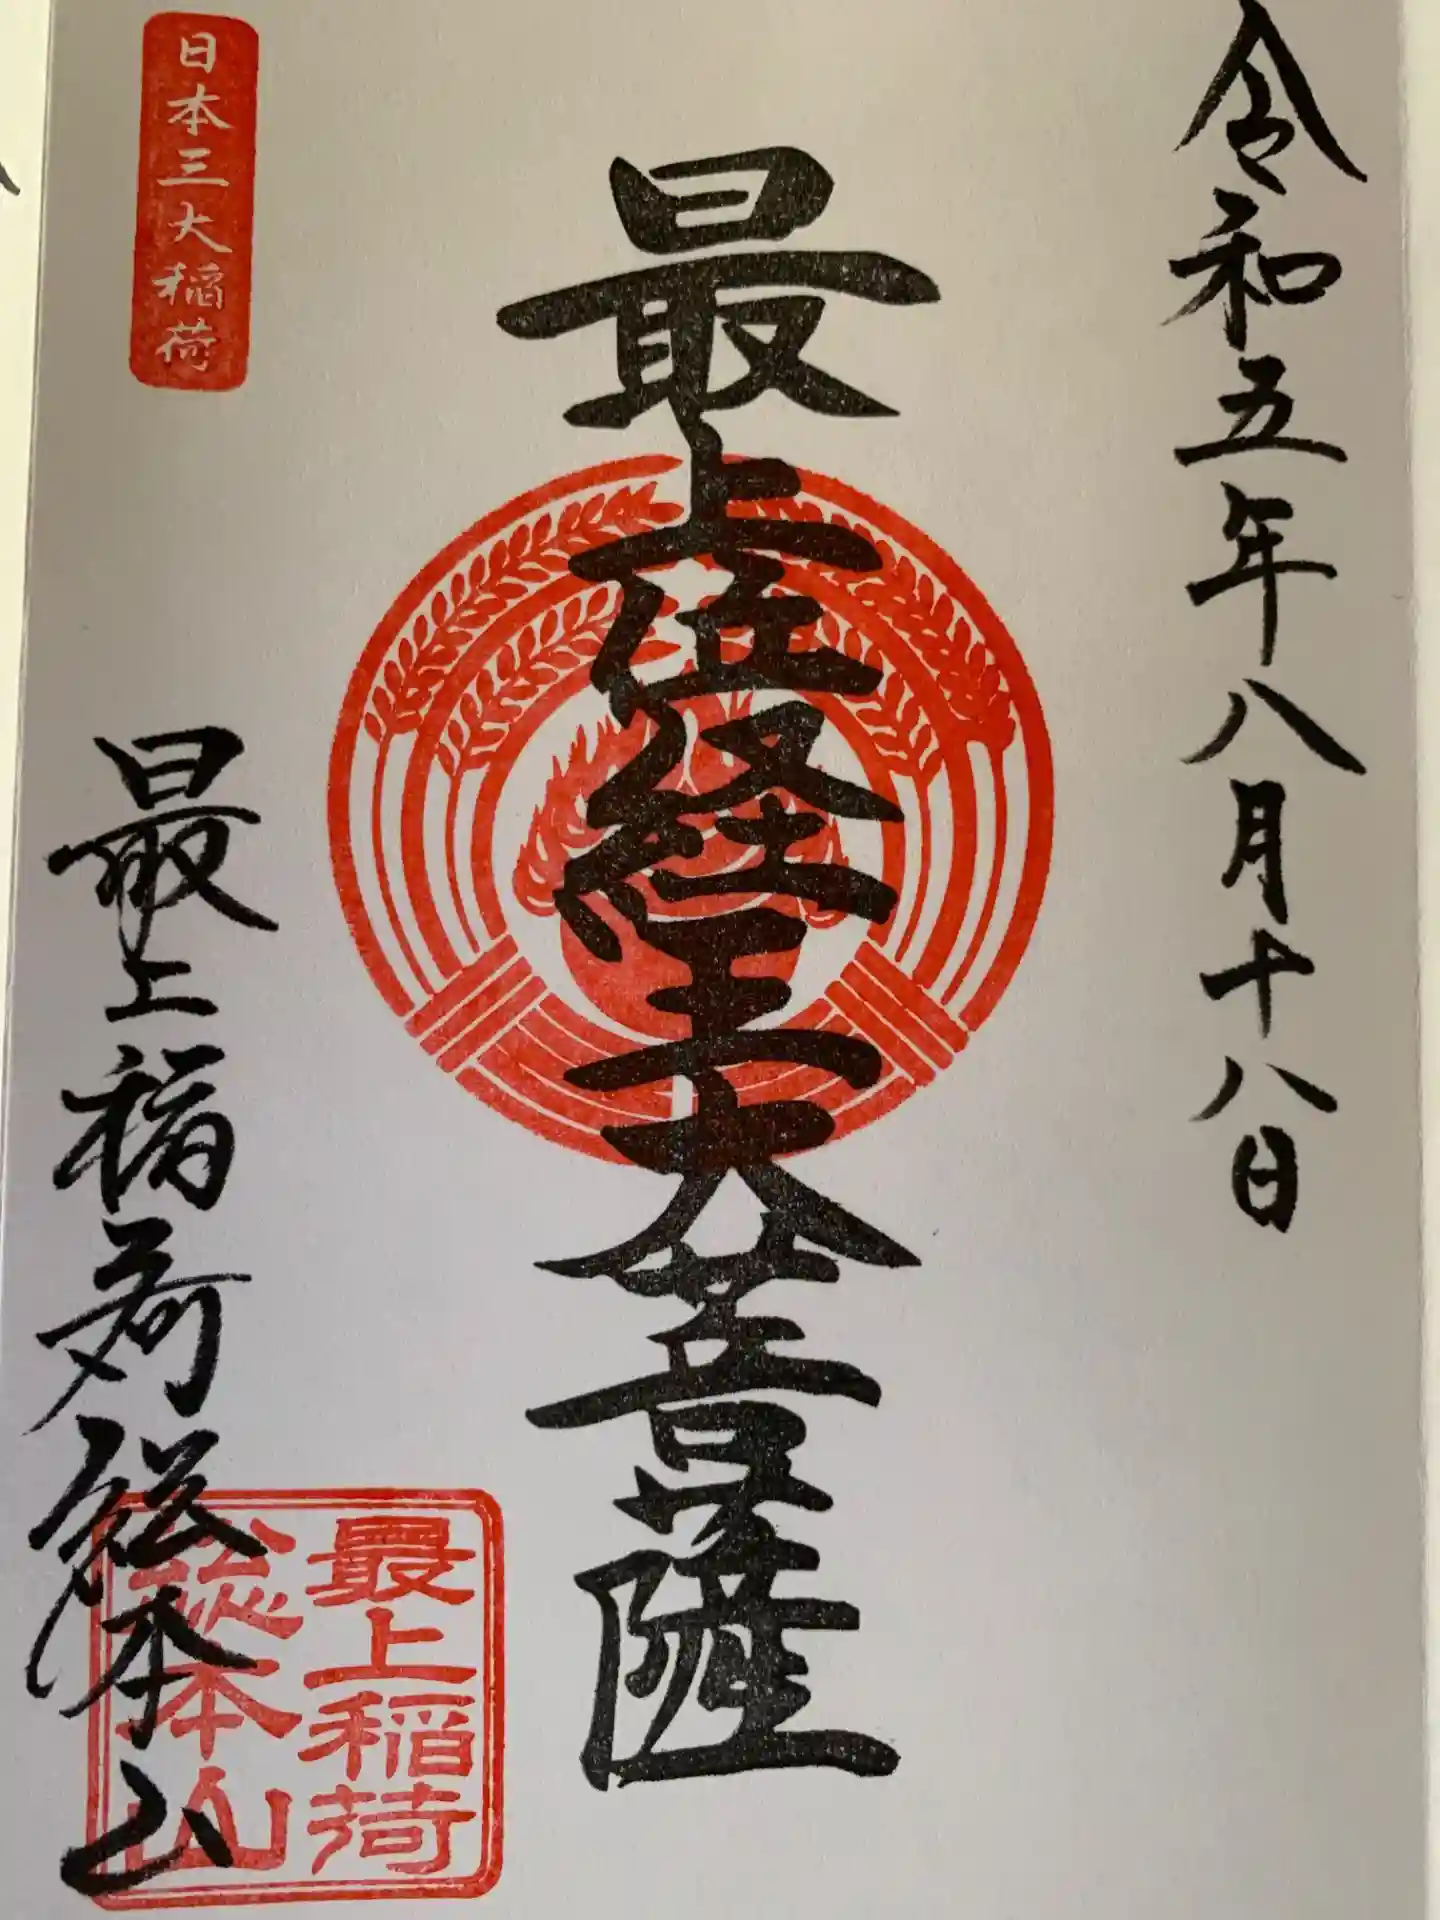 令和五年八月十八日
最上位経王大菩薩
日本三大稲荷
最上稲荷総本山
最上稲荷
総本山